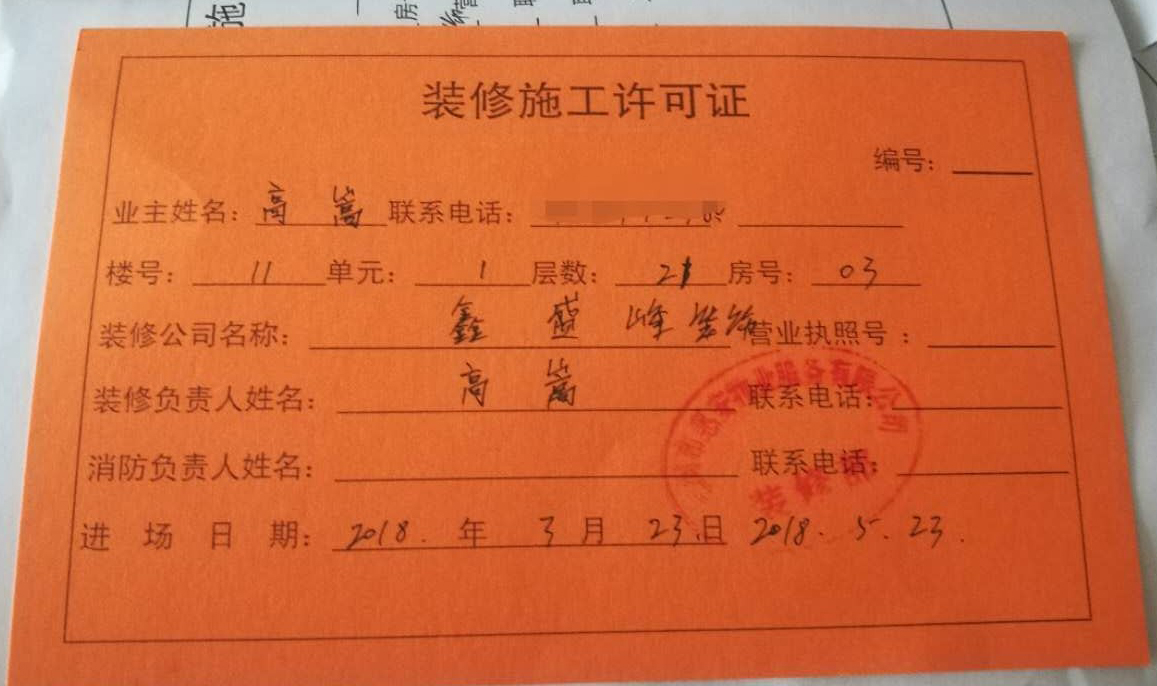 施
房
装修施工许可证
编号:
业主姓名: 高嵩 联系电话:
楼号: 11 单元: 1 层数: 21 房号: 03
装修公司名称: 鑫盛峰装饰 营业执照号:
装修负责人姓名: 高嵩 联系电话:
消防负责人姓名: 联系电话:
进场日期: 2018. 年 3 月 23.日 2018. 5. 23.
物业服务有限公司
装修